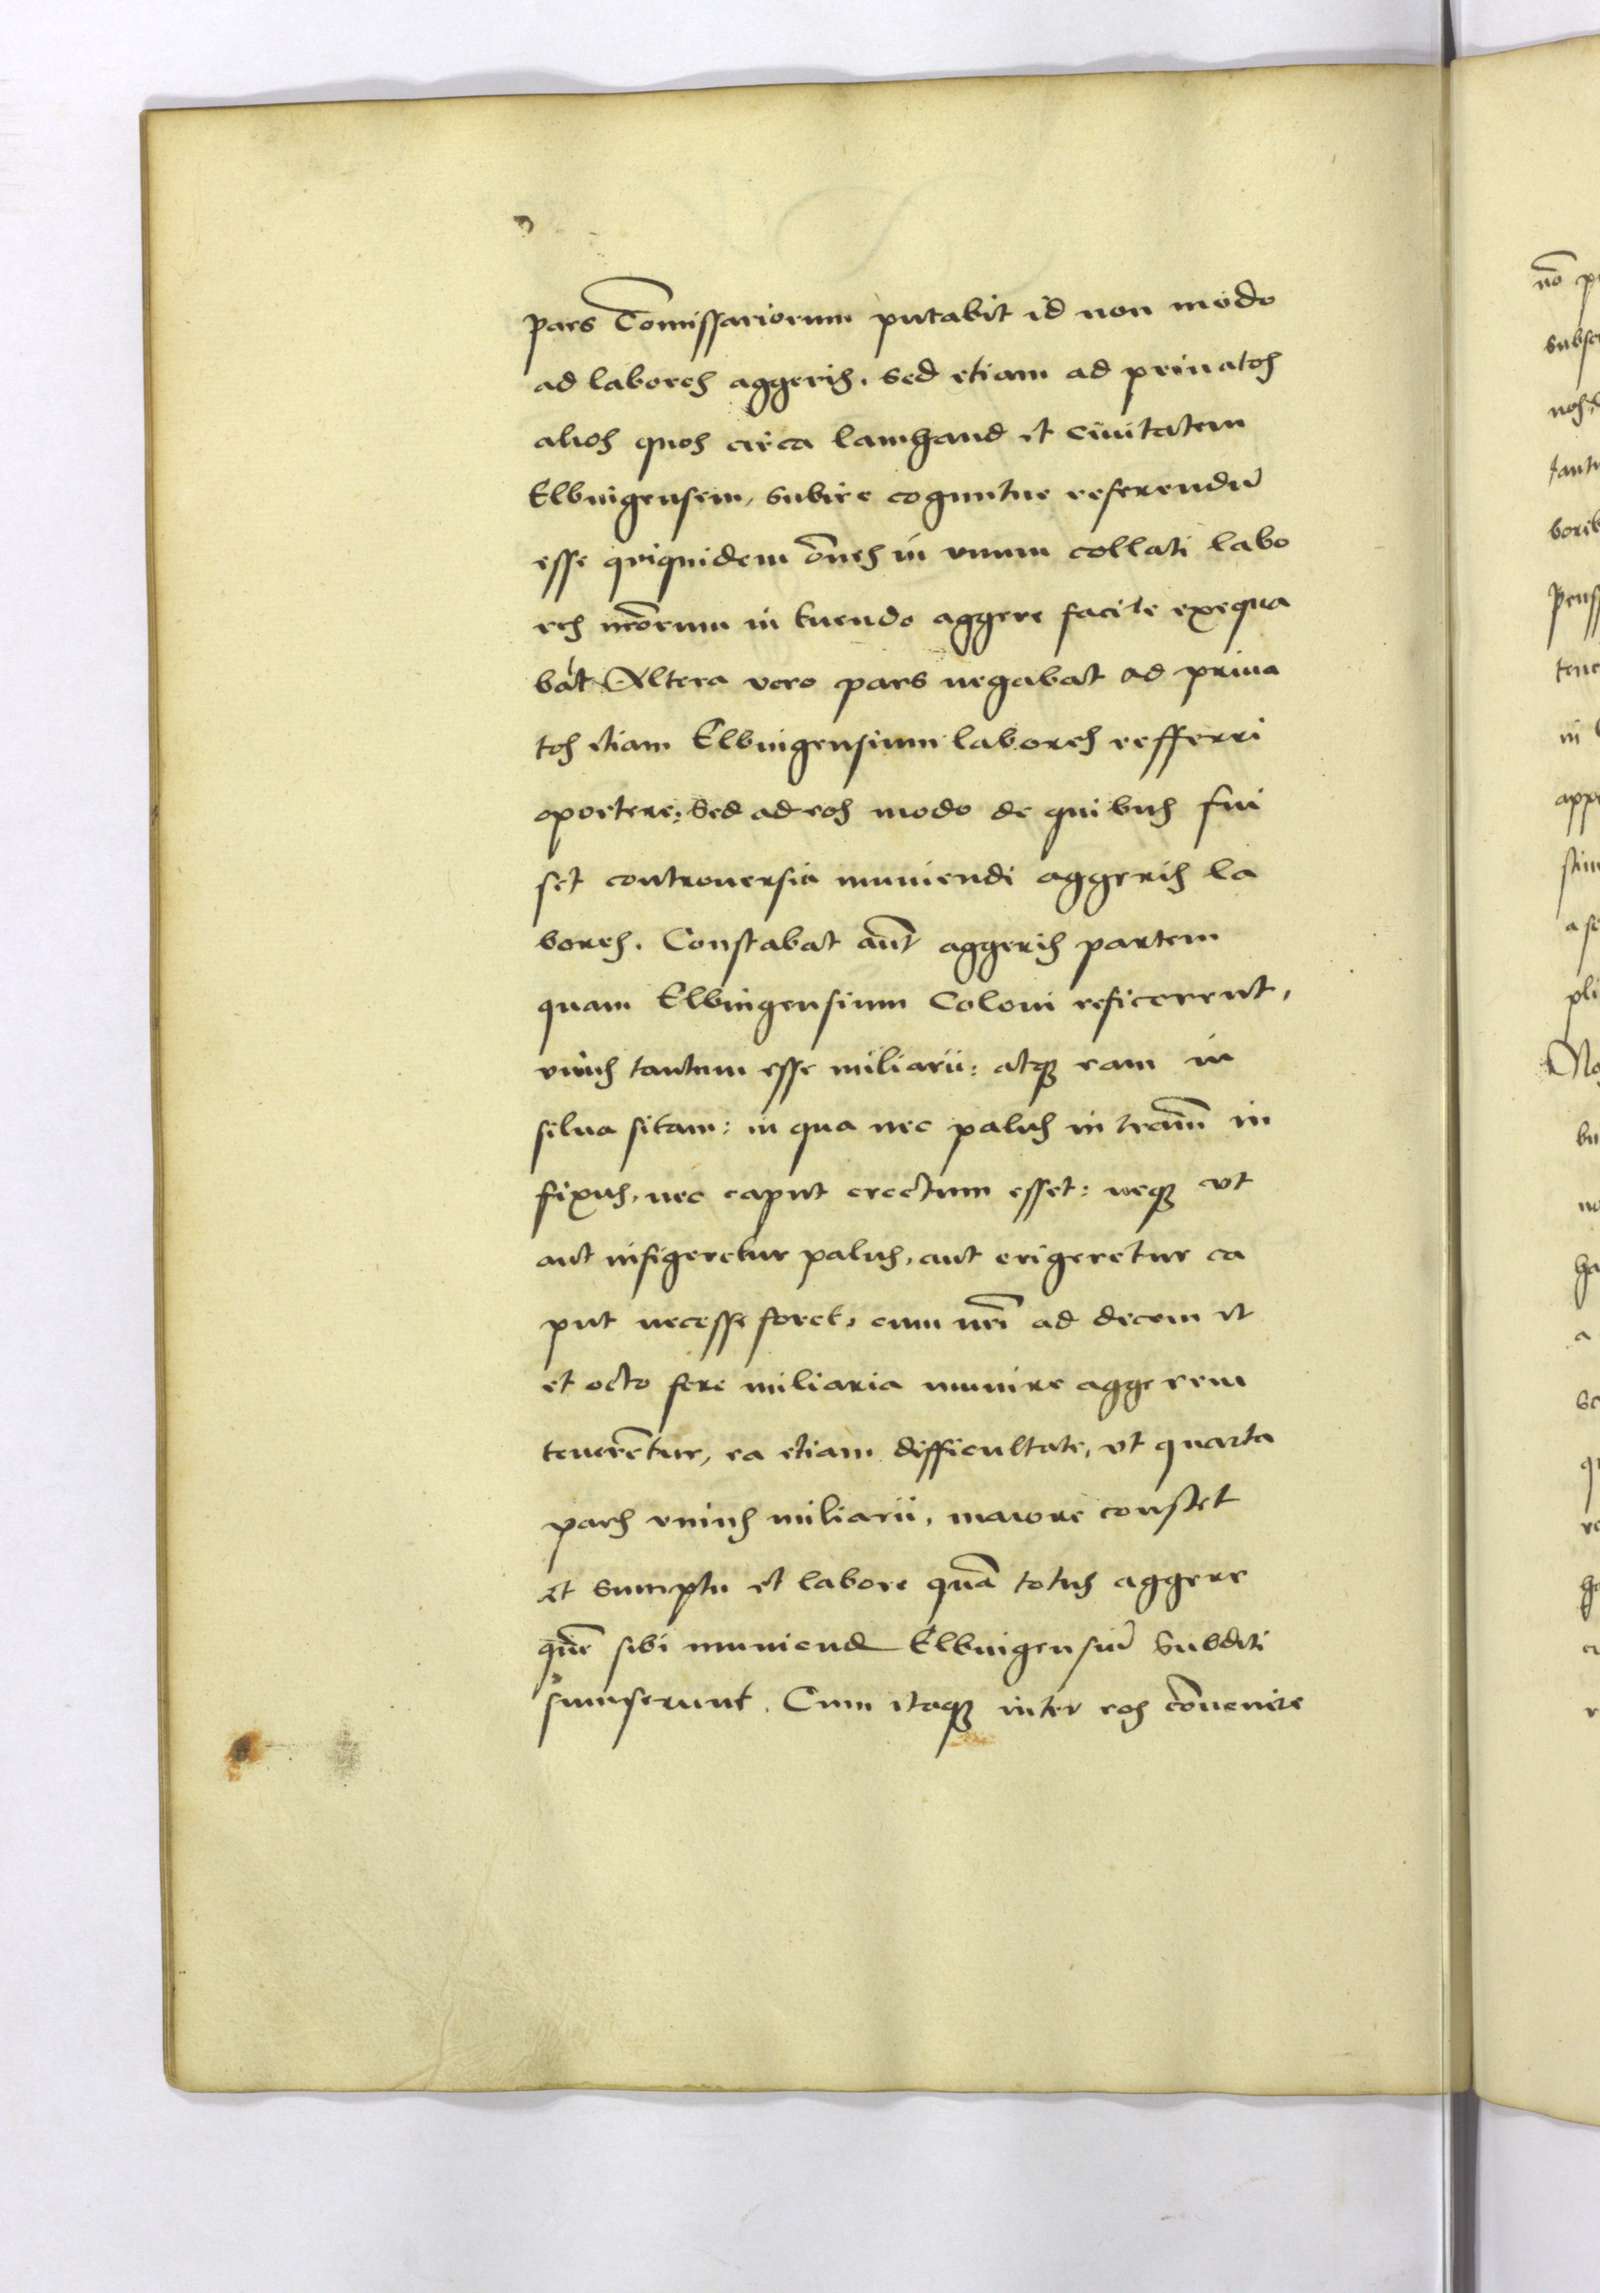 pars Com̄issariorum putabit id non modo
ad labores aggeris, sed etiam ad priuatos
alios quos circa lamhand et ciuitatem
Elbingensem, subire coguntur referendū
esse qπquidem ōnes in vnum collati labo
res nr̄orum in tuendo aggere facile exequa
bāt Altera vero pars negabat ad priua
tos etiam Elbingensium labores refferri
oportere: Sed ad eos modo de quibus fui
set controuersia muniendi aggeris la
bores. Constabat aūt aggeris partem
quam Elbingensium Coloni reficerent,
vnius tantum esse miliarii: atq̨ eam in
silua sitam: in qua nec palus in terram̄ in
fixus, nec caput erectum esset: neq̨ vt
aut infigeretur palus, aut erigeretur ca
put necesse foret, cum nr̄i ad decem et
et octo fere miliaria munire aggerem
tenerētur, ea etiam difficultate, vt quarta
pars vnius miliarii, maiore constet
et sumptu et labore quā totus aggere
quē sibi muniend Elbingensiū Subditi
sumserunt. Cum itaq̨ inter eos cōuenire
nō
subse
nos,
tant
borib
pens
tene
in
app
stim
a se
pli
No
bu
no
ha
a
se
qu
re